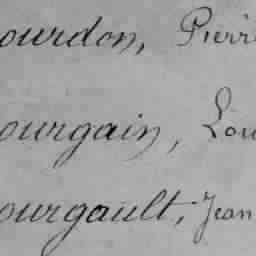 ourdon, Pierr
ourgain, Lou
ourgault, Jean